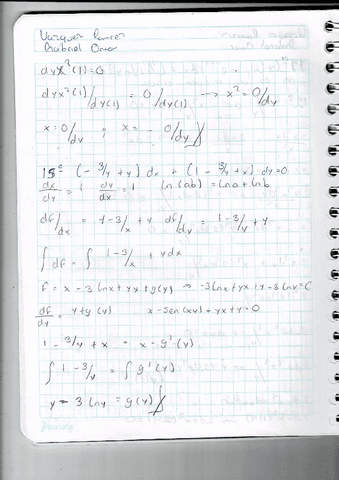 dyx²(1)=0
dyx²(1)/dy(1) = 0/dy(1) → x² = 0/dy
x = 0/dy ; x = - 0/dy
18° (- 3/y + y) dx + (1 - 3/y + x) dy = 0
dx/dy = 1 dy/dx = 1 ln(ab) = lna + lnb
dF/dx = 1 - 3/x + y dF/dy = 1 - 3/y + y
∫ dF = ∫ 1 - 3/x + ydx
F = x - 3 lnx + yx + g(y) → -3lnx + yx + y - 3 lny = C
dF/dy = x + g(y) x - sen(xy) + yx + y = 0
1 - 3/y + x = x - g'(y)
∫ 1 - 3/y = ∫ g'(y)
y - 3 lny = g(y)